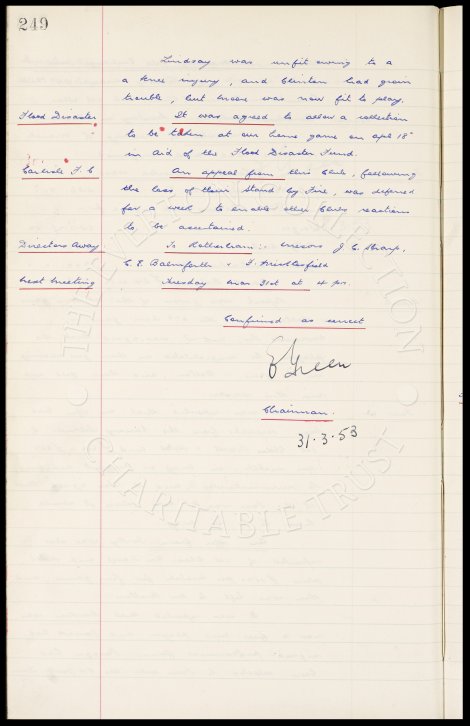 249
Lindsay was unfit owing to a
a knee injury, and Clinton had groin
trouble, but Moore was now fit to play.
Flood Disaster
It was agreed to allow a collection
to be taken at our home game on apl 18th
in aid of the Flood Disaster Fund.
Carlisle F.C
An appeal from this Club, following
the loss of their Stand by Fire, was deferred
for a week to enable other Clubs reactions
to be ascertained.
Directors Away
To Rotherham :- messrs J. C. Sharp,
C. E. Balmforth &
Next Meeting
Tuesday mar 31st at 4 pm
Confirmed as correct
E Green
Chairman.
31.3.53
THE EVERTON COLLECTION
CHARITABLE TRUST